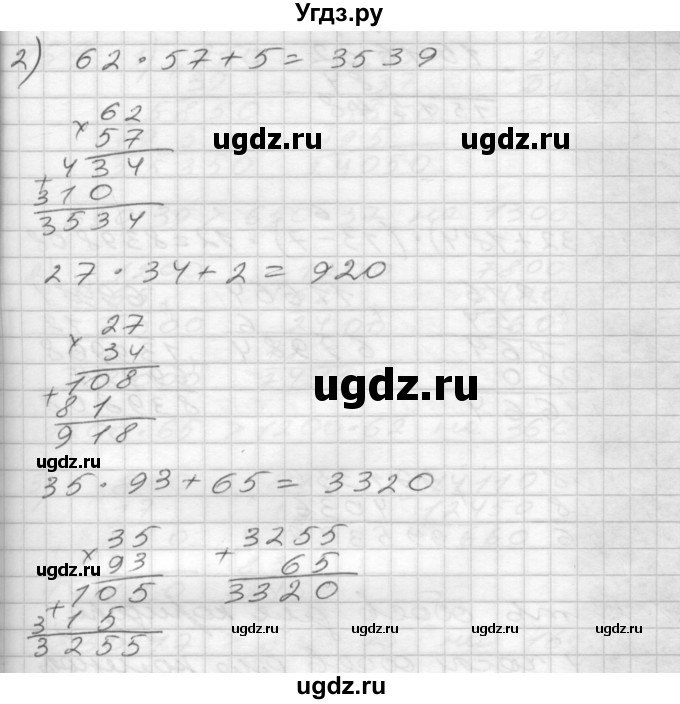 Угдз.ру
2) 62 · 57 + 5 = 3539
62
× 57
434
+ 310
3534
ugdz.ru ugdz.ru
27 · 34 + 2 = 920
27
× 34
108
+ 81
918
ugdz.ru
ugdz.ru
35 · 93 + 65 = 3320
35
× 93
105
+ 315
3255
3255
+ 65
3320
ugdz.ru
ugdz.ru ugdz.ru ugdz.ru
ugdz.ru